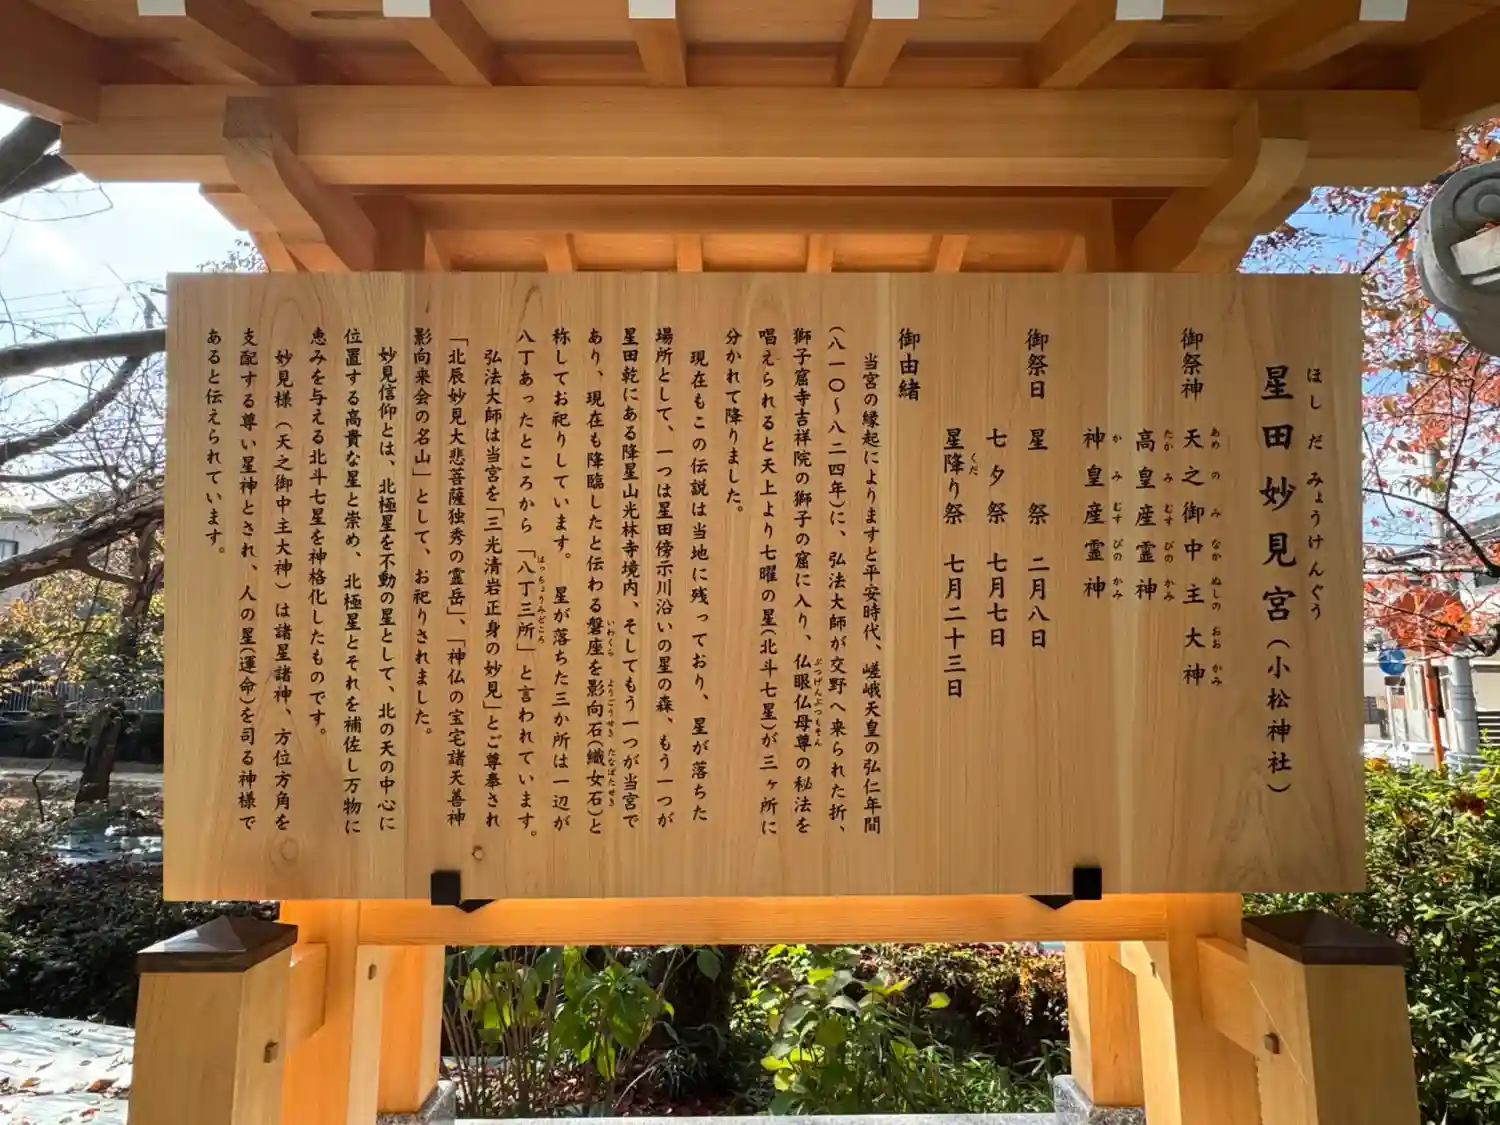 ほしだみょうけんぐう
星田妙見宮(小松神社)
御祭神 天之御中主大神
あめのみなかぬしのおおかみ
高皇産霊神
たかみむすびのかみ
神皇産霊神
かみむすびのかみ
御祭日 星祭 二月八日
七夕祭 七月七日
星降り祭 七月二十三日
くだ
御由緒
当宮の縁起によりますと平安時代、嵯峨天皇の弘仁年間
(八一〇~八二四年)に、弘法大師が交野へ来られた折、
獅子窟寺吉祥院の獅子の窟に入り、仏眼仏母尊の秘法を
ぶつげんぶつもそん
唱えられると天上より七曜の星(北斗七星)が三ヶ所に
分かれて降りました。
現在もこの伝説は当地に残っており、星が落ちた
場所として、一つは星田傍示川沿いの星の森、もう一つが
星田乾にある降星山光林寺境内、そしてもう一つが当宮で
あり、現在も降臨したと伝わる磐座を影向石(織女石)と
いわくら ようごうせき たなばたせき
称してお祀りしています。星が落ちた三か所は一辺が
八丁あったところから「八丁三所」と言われています。
はっちょうみどころ
弘法大師は当宮を「三光清岩正身の妙見」とご尊奉され
「北辰妙見大悲菩薩独秀の霊岳」、「神仏の宝宅諸天善神
影向来会の名山」として、お祀りされました。
妙見信仰とは、北極星を不動の星として、北の天の中心に
位置する高貴な星と崇め、北極星とそれを補佐し万物に
恵みを与える北斗七星を神格化したものです。
妙見様(天之御中主大神)は諸星諸神、方位方角を
支配する尊い星神とされ、人の星(運命)を司る神様で
あると伝えられています。